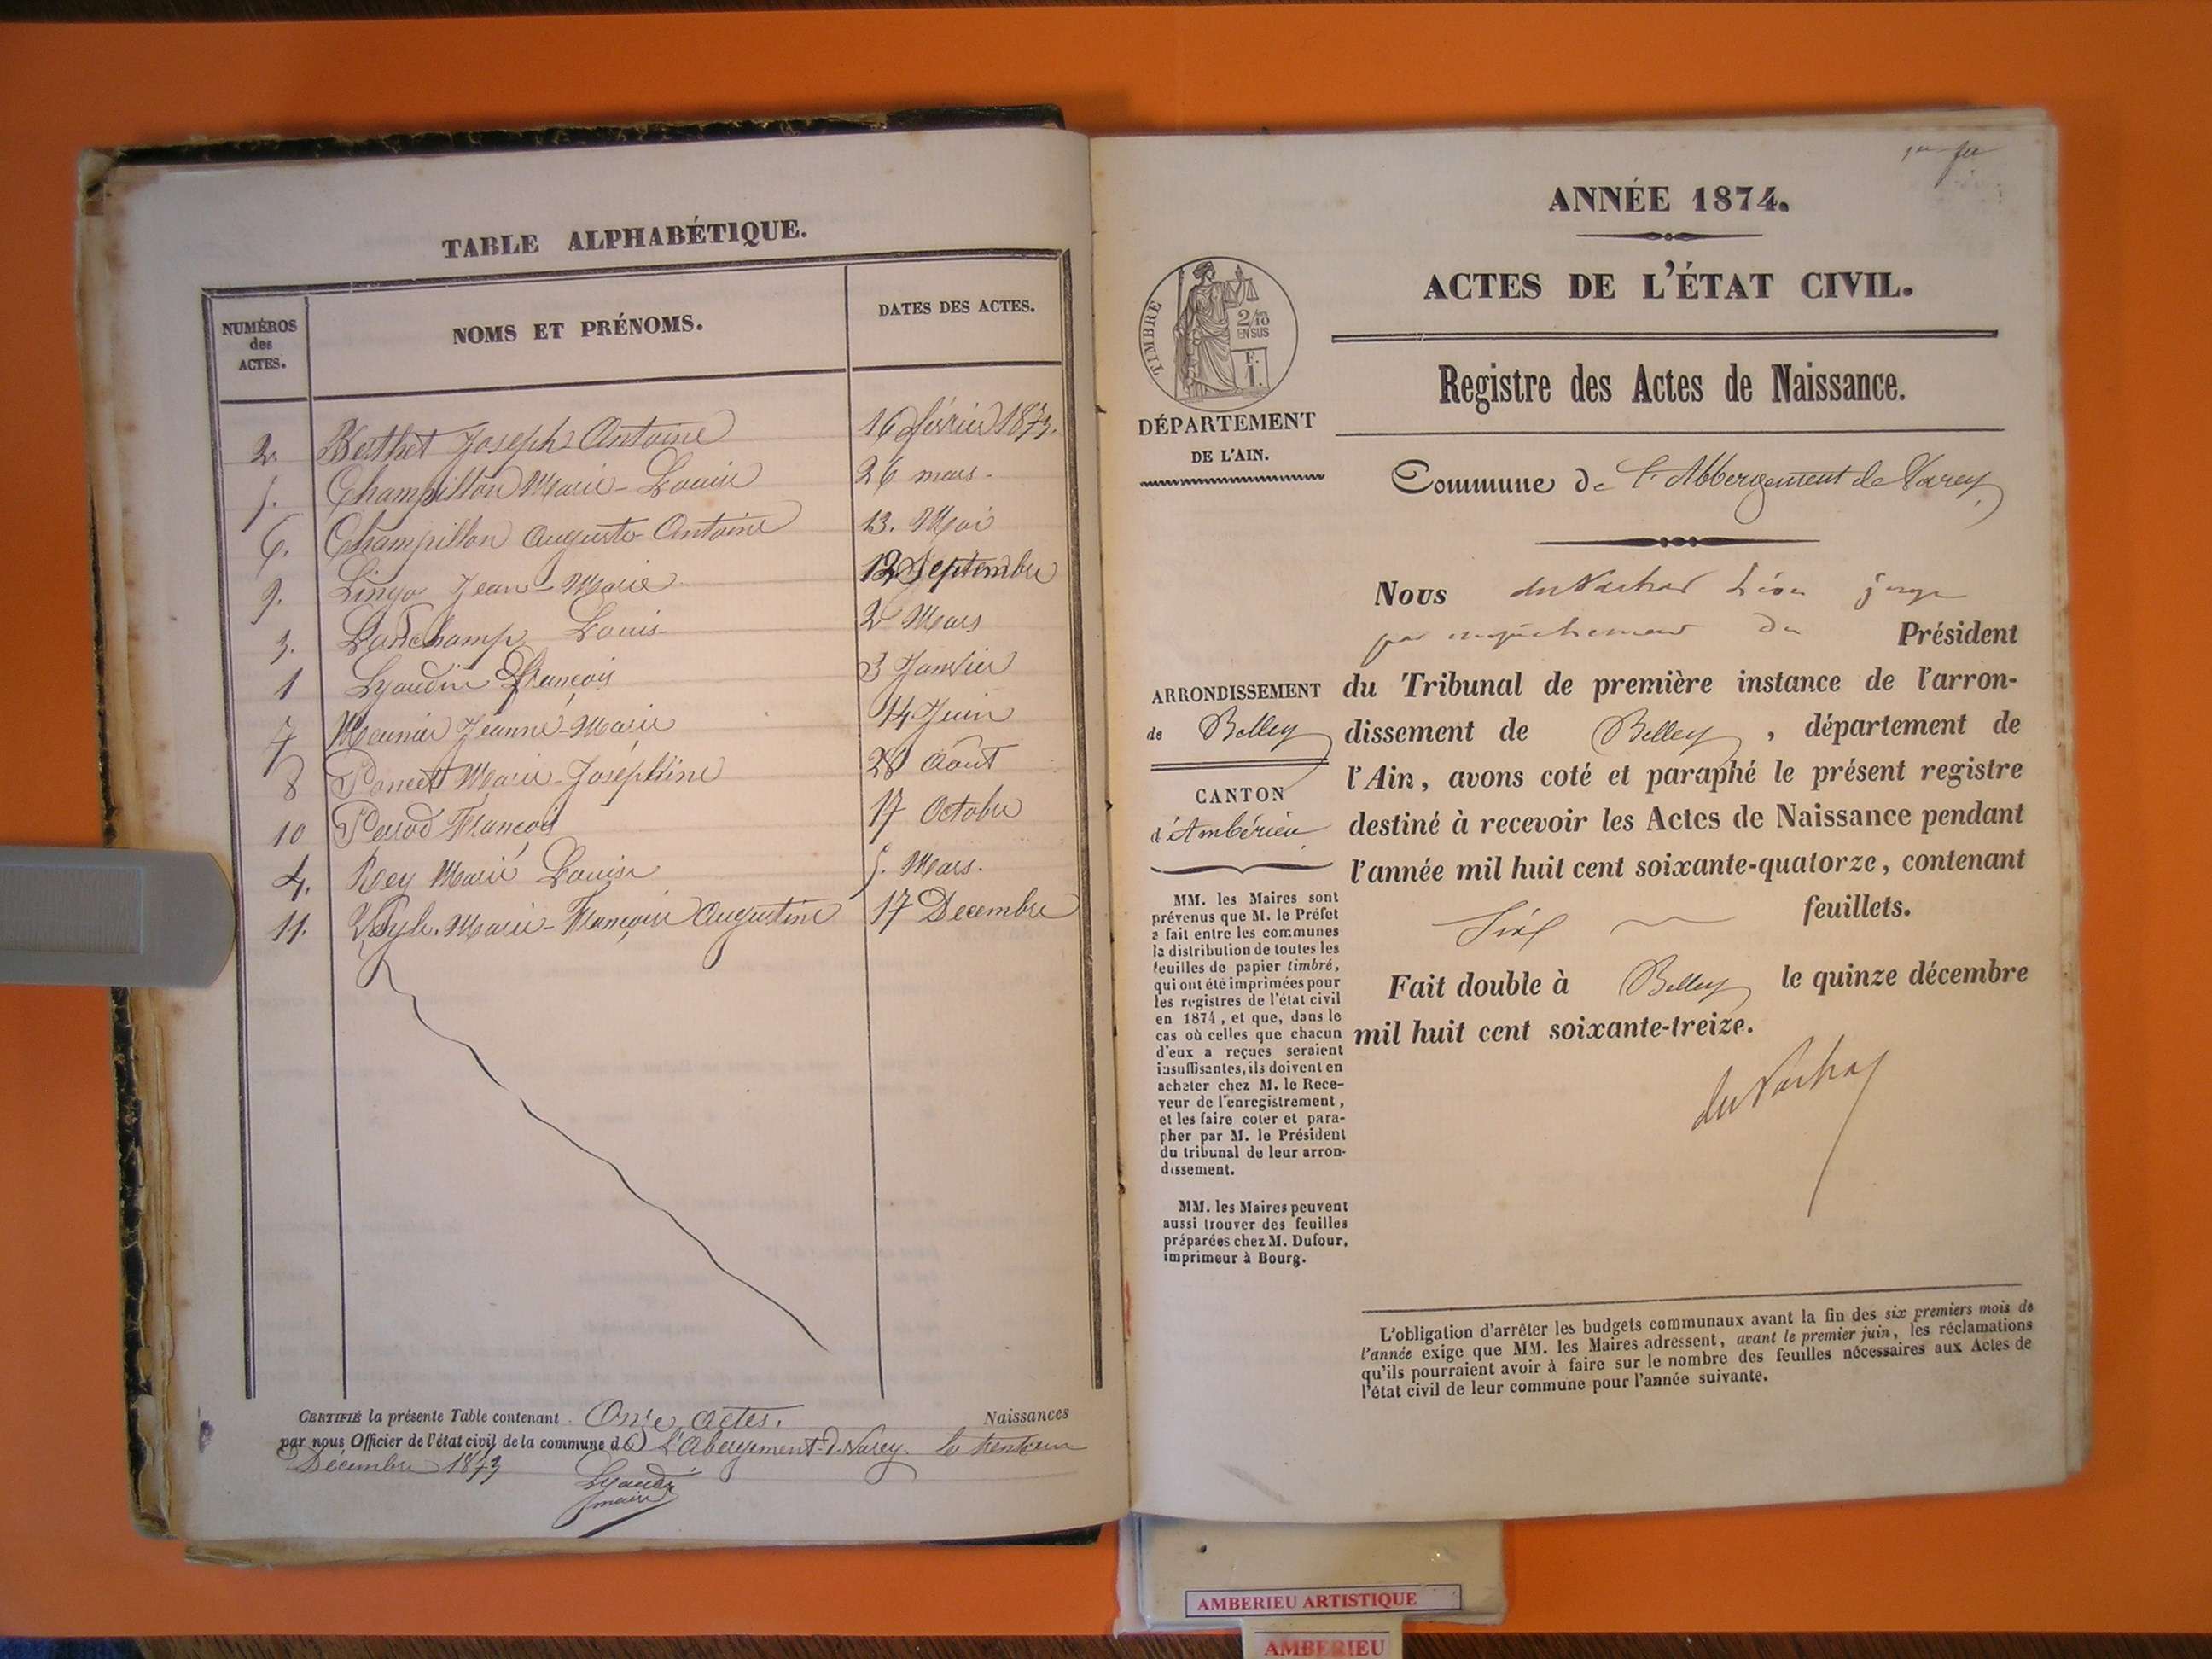 TABLE ALPHABÉTIQUE.
NUMÉROS
des
ACTES.
NOMS ET PRÉNOMS.
DATES DES ACTES.
2. Berthet Joseph Antoine 16 février 1873.
5. Champillon Marie-Louise 26 mars.
6. Champillon Auguste-Antoine 13. Mai
9. Jean-Marie 12 Septembre
3. Louis 2 Mars
1 Lyaudin François 3 Janvier
7 Meunier Jeanne-Marie 14 Juin
8 Poncet Marie-Joséphine 28 Août
10 Perrod François 17 Octobre
4. Rey Marie Louise 5. Mars.
11. Marie-Françoise Augustine 17 Decembre
CERTIFIÉ la présente Table contenant Onze actes. Naissances
par nous Officier de l'état civil de la commune de L'Abergement-d-Varey le trente un
Décembre 1873
Lyaudin
maire
1er
ANNÉE 1874.
ACTES DE L'ÉTAT CIVIL.
TIMBRE
2/10
EN SUS
F.
1.
Registre des Actes de Naissance.
DÉPARTEMENT
DE L'AIN.
Commune de l'Abbergement de Varey
Nous Léon juge
par empêchement du Président
du Tribunal de première instance de l'arron-
dissement de Belley, département de
l'Ain, avons coté et paraphé le présent registre
destiné à recevoir les Actes de Naissance pendant
l'année mil huit cent soixante-quatorze, contenant
Six feuillets.
Fait double à Belley le quinze décembre
mil huit cent soixante-treize.
ARRONDISSEMENT
de Belley
CANTON
d'Ambérieu
MM. les Maires sont
prévenus que M. le Préfet
a fait entre les communes
la distribution de toutes les
feuilles de papier timbré,
qui ont été imprimées pour
les registres de l'état civil
en 1874, et que, dans le
cas où celles que chacun
d'eux a reçues seraient
insuffisantes, ils doivent en
acheter chez M. le Rece-
veur de l'enregistrement,
et les faire coter et para-
pher par M. le Président
du tribunal de leur arron-
dissement.
MM. les Maires peuvent
aussi trouver des feuilles
préparées chez M. Dufour,
imprimeur à Bourg.
L'obligation d'arrêter les budgets communaux avant la fin des six premiers mois de
l'année exige que MM. les Maires adressent, avant le premier juin, les réclamations
qu'ils pourraient avoir à faire sur le nombre des feuilles nécessaires aux Actes de
l'état civil de leur commune pour l'année suivante.
AMBERIEU ARTISTIQUE
AMBERIEU